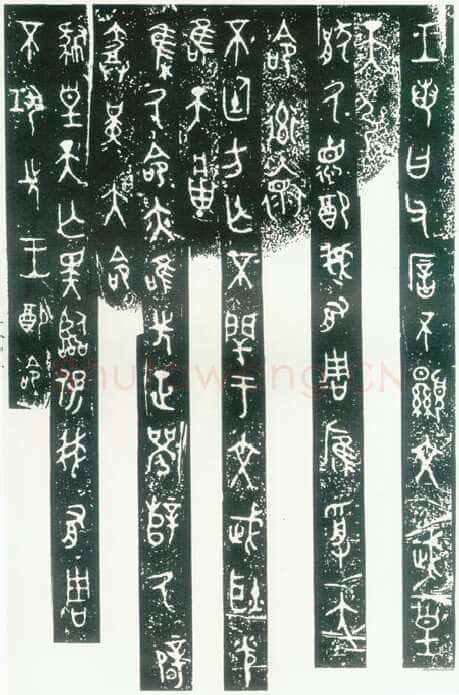 王若曰父㾓不顯文武皇
天引猒
厥德配我有周膺受大
命率褱
不廷方亡不閈于文武耿光
唯天
集厥命亦唯先正辥厥辟
堇大命
肆皇天亡斁臨保我有周
不巩先王配命
shufawang.CN